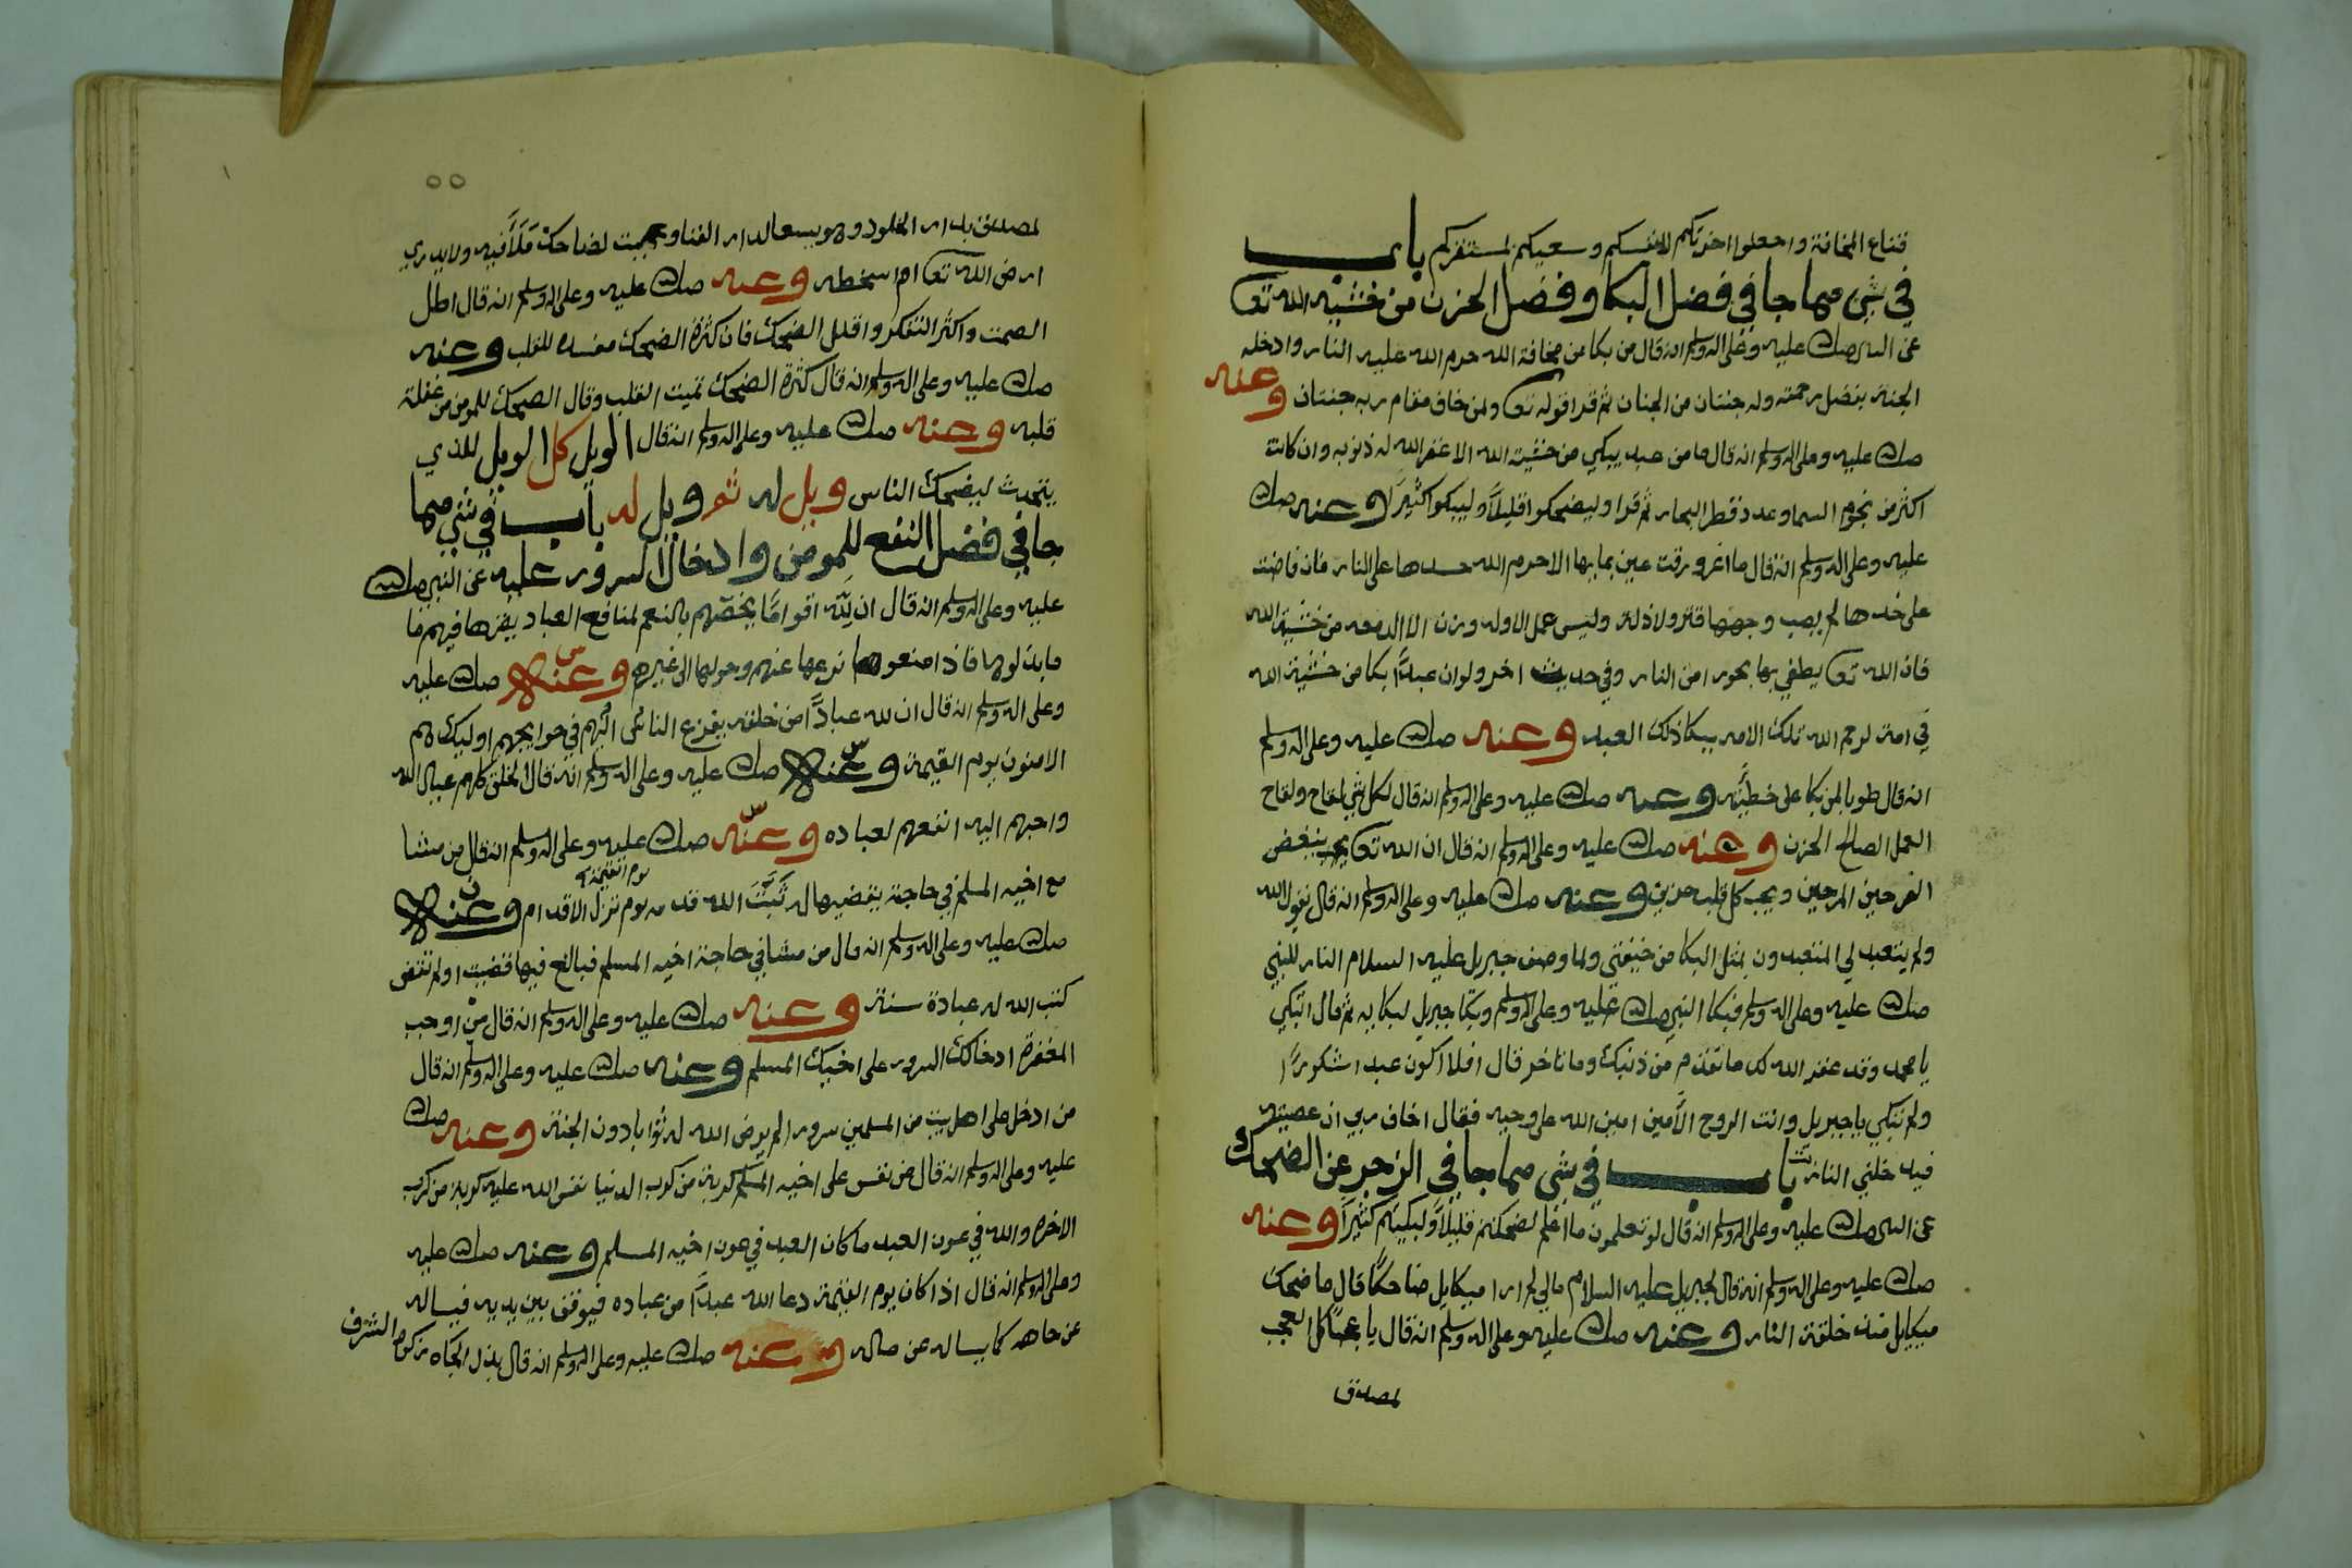 قناع المخافة واجعلوا اخرتكم لانفسكم وسعيكم لمستقركم باب
في شي مما جا في فضل البكا وفضل الحزن من خشية الله تعا
عن النبي صلى الله عليه وعلى اله وسلم انه قال من بكا من مخافة الله حرم الله عليه النار وادخله
الجنة بفضل رحمته وله جنتان من الجنان ثم قرا قوله تعا ولمن خاف مقام ربه جنتان وعنه
صلى الله عليه وعلى اله وسلم انه قال ما من عبد يبكي من خشية الله الا غفر الله له ذنوبه وان كانت
اكثر من نجوم السما وعدد قطر البحار ثم قرا وليضحكوا قليلاً وليبكوا كثيراً وعنه صلى الله
عليه وعلى اله وسلم انه قال ما اغرورقت عين بمايها الا حرم الله جسدها على النار فان فاضت
على خدها لم يصب وجهها قتر ولا ذلة وليس عمل الا وله وزن الا الدمعه من خشية الله
فان الله تعا يطفي بها بحورا من النار وفي حديث اخر ولو ان عبداً بكا من خشية الله
في امة لرحم الله تلك الامه ببكا ذلك العبد وعنه صلى الله عليه وعلى اله وسلم
انه قال طوبا لمن بكا على خطيته وعنه صلى الله عليه وعلى اله وسلم انه قال لكل شي لقاح ولقاح
العمل الصالح الحزن وعنه صلى الله عليه وعلى اله وسلم انه قال ان الله تعا يبغض
الفرحين المرحين ويحب كل قلب حزين وعنه صلى الله عليه وعلى اله وسلم انه قال يقول الله
ولم يتعبد لي المتعبدون بمثل البكا من خيفتي ولما وصف جبريل عليه السلام النار للنبي
صلى الله عليه وعلى اله وسلم فبكا النبي صلى الله عليه وعلى اله وسلم وبكا جبريل لبكايه ثم قال اتبكي
يا محمد وقد غفر الله لك ما تقدم من ذنبك وما تاخر قال افلا اكون عبدا شكوراً
ولم تبكي يا جبريل وانت الروح الامين امين الله على وحيه فقال اخاف ربي ان عصيته
فيدخلني النار باب في شي مما جا في الزجر عن الضحك
عن النبي صلى الله عليه وعلى اله وسلم انه قال لو تعلمون ما اعلم لضحكتم قليلاً ولبكيتم كثيراً وعنه
صلى الله عليه وعلى اله وسلم انه قال لجبريل عليه السلام مالي لم ارا ميكايل ضاحكاً قال ما ضحك
ميكايل منذ خلقت النار وعنه صلى الله عليه وعلى اله وسلم انه قال يا عجباً كل العجب
لمصدق
٥٥
لمصدق بدار الخلود وهو يسعا لدار الفنا وعجبت لضاحك مَلَأَ فيه ولا يدري
ارض الله تعا ام اسخطه وعنه صلى الله عليه وعلى اله وسلم انه قال اطل
الصمت واكثر التفكر واقلل الضحك فان كثرة الضحك مفسده للقلب وعنه
صلى الله عليه وعلى اله وسلم انه قال كثرة الضحك تميت القلب وقال الضحك للمومن من غفلة
قلبه وعنه صلى الله عليه وعلى اله وسلم انه قال الويل كل الويل للذي
يتحدث ليضحك الناس ويل له ثم ويل له باب في شي مما
جا في فضل النفع للمومن وادخال السرور عليه عن النبي صلى الله
عليه وعلى اله وسلم انه قال ان لله اقواماً يخصهم بالنعم لمنافع العباد يقرها فيهم ما
ما بذلوها فاذا منعوها نزعها عنهم وحولها الى غيرهم وعنه صلى الله عليه
وعلى اله وسلم انه قال ان لله عباداً من خلقه يفزع الناس اليهم في حوايجهم اوليك هم
الامنون يوم القيمة وعنه صلى الله عليه وعلى اله وسلم انه قال الخلق كلهم عيال الله
واحبهم اليه انفعهم لعباده وعنه صلى الله عليه وعلى اله وسلم انه قال من مشا
يوم القيمة
مع اخيه المسلم في حاجة يقضيها له ثَبَّتَ الله قدمه يوم تزل الاقدام وعنه
صلى الله عليه وعلى اله وسلم انه قال من مشا في حاجة اخيه المسلم فبالغ فيها قضيت او لم تقض
كتب الله له عبادة سنة وعنه صلى الله عليه وعلى اله وسلم انه قال من اوجب
المغفرة ادخالك السرور على اخيك المسلم وعنه صلى الله عليه وعلى اله وسلم انه قال
من ادخل على اهل بيت من المسلمين سرورا لم يرض الله له ثوابا دون الجنة وعنه صلى الله
عليه وعلى اله وسلم انه قال من نفس على اخيه المسلم كربة من كرب الدنيا نفس الله عليه كربة من كرب
الاخرة والله في عون العبد ما كان العبد في عون اخيه المسلم وعنه صلى الله عليه
وعلى اله وسلم انه قال اذا كان يوم القيمة دعا الله عبداً من عباده فيوقف بين يديه فيساله
عن جاهه كما يساله عن ماله وعنه صلى الله عليه وعلى اله وسلم انه قال بذل الجاه زكوة الشرف